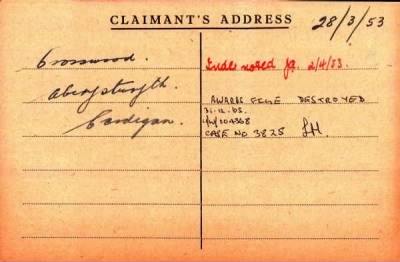 CLAIMANT'S ADDRESS
28/3/53
Crosswood.
Aberystwyth
Cardigan.
Inde noted 2/4/53.
AWARDS FILE DESTROYED
31.12.65.
CASE NO 3825